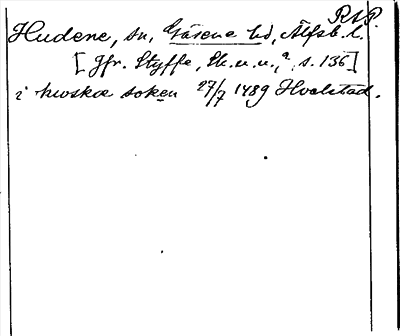 RAP.
Hudene, sn, Gäsene hd, Älfsb. l.
[Jfr. Styffe, Sk.u.u.,² s. 136]
i hwskæ soken 27/7 1489 Hvalstad.